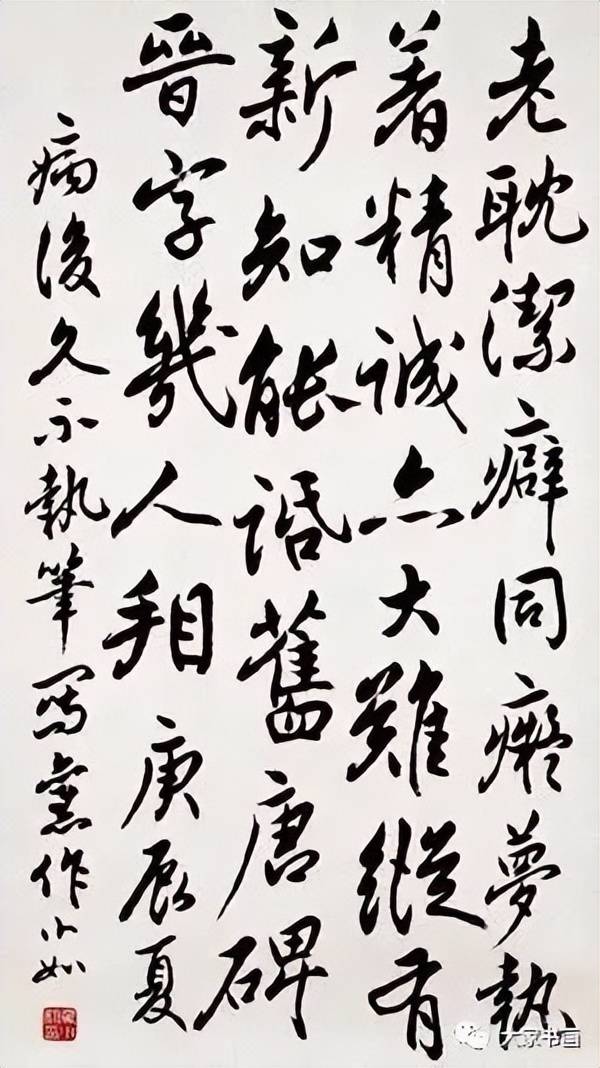 老耽潔癖同癡夢執
着精誠亦大難縱有
新知能話舊唐碑
晉字幾人看庚辰夏
病後久不執筆寫作小如
大家书画